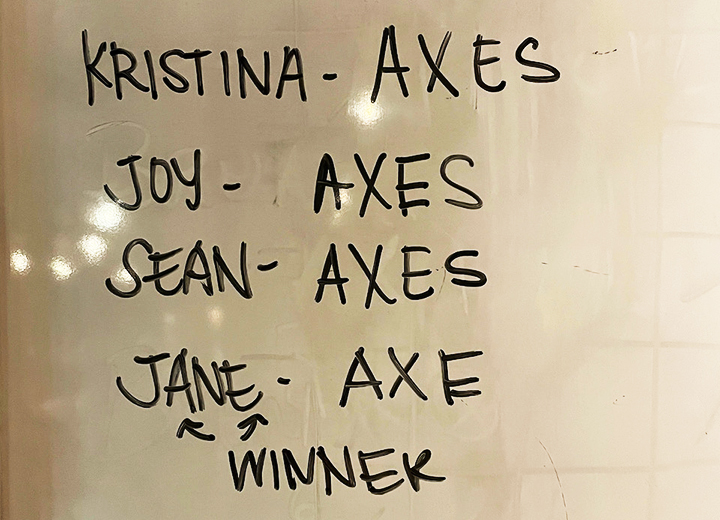 KRISTINA - AXES
JOY - AXES
SEAN - AXES
JANE - AXE
WINNER